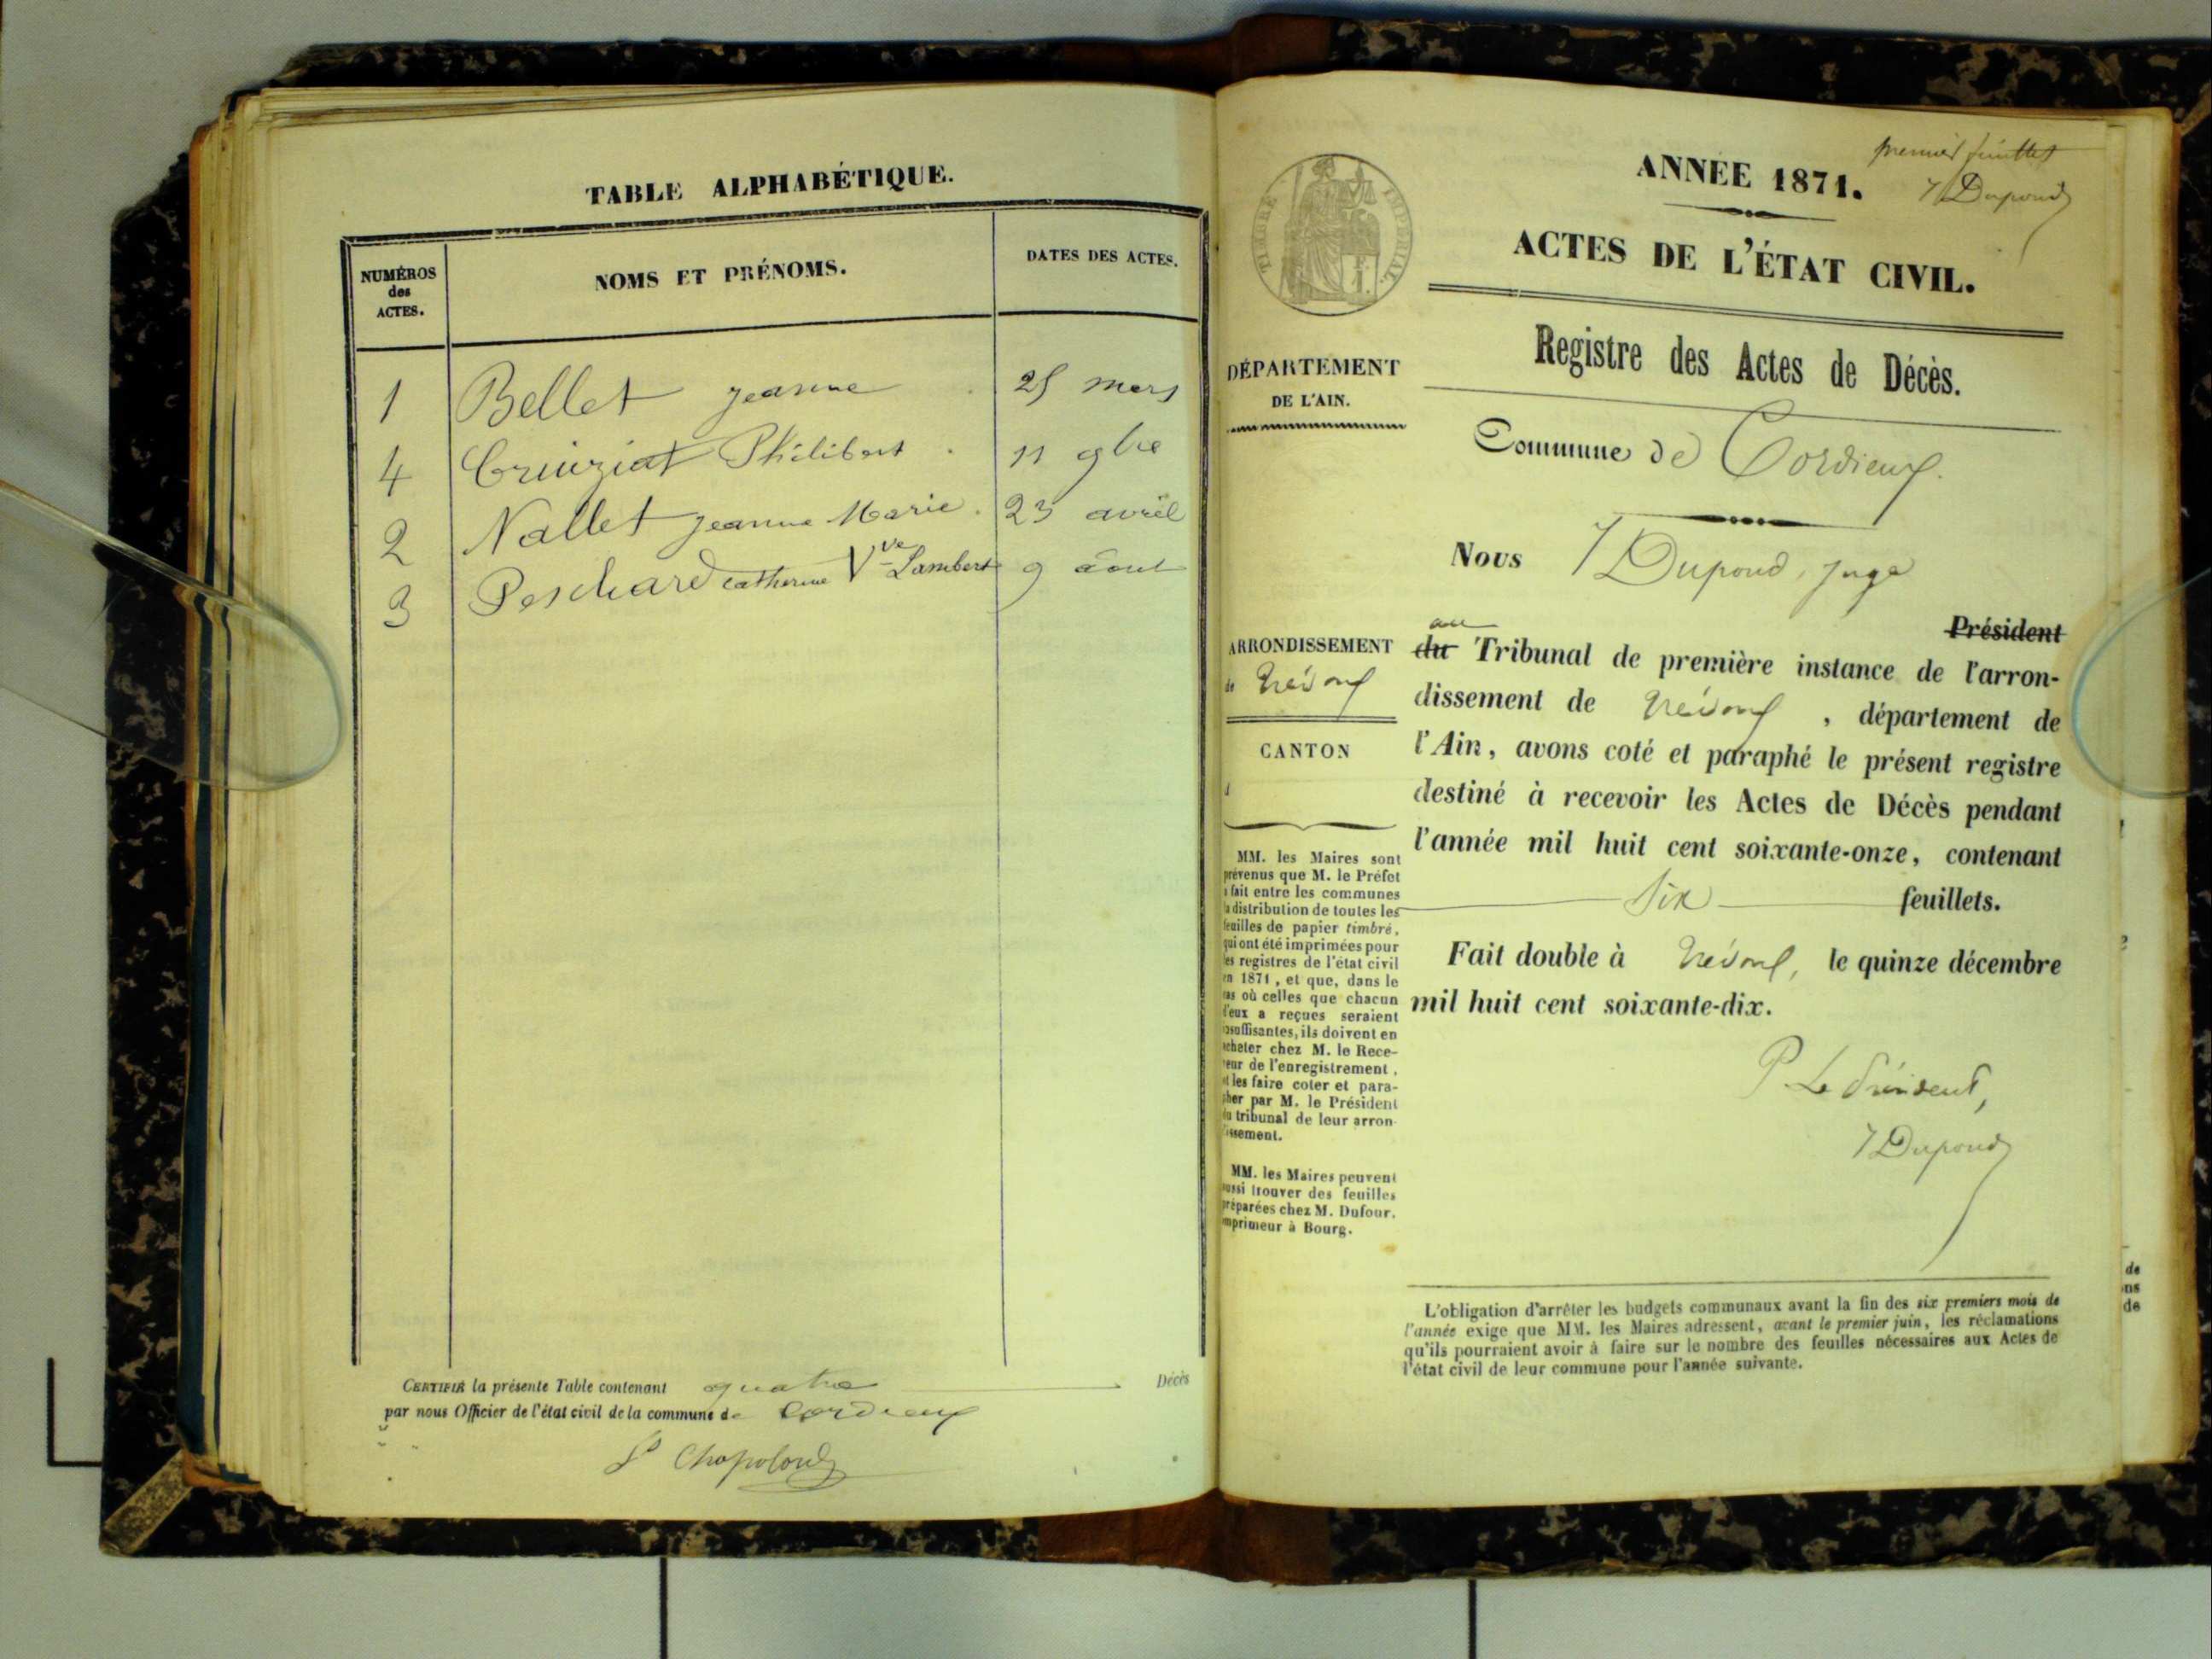 TABLE ALPHABÉTIQUE.
NUMÉROS
des
ACTES.
NOMS ET PRÉNOMS.
DATES DES ACTES.
1 Bellet Jeanne 25 mars
4 Cruiziat Philibert 11 9bre
2 Nallet Jeanne Marie 23 avril
3 Peschard Catherine Vve Lambert 9 août
CERTIFIÉ la présente Table contenant quatre Décès
par nous Officier de l'état civil de la commune de Cordieux
Chapolard
premier feuillet
J Dupond
ANNÉE 1871.
ACTES DE L'ÉTAT CIVIL.
TIMBRE IMPÉRIAL.
Registre des Actes de Décès.
DÉPARTEMENT
DE L'AIN.
Commune de Cordieux.
Nous J Dupond, juge
Président
au
ARRONDISSEMENT
de Trévoux
CANTON
d
du Tribunal de première instance de l'arron-
dissement de Trévoux, département de
l'Ain, avons coté et paraphé le présent registre
destiné à recevoir les Actes de Décès pendant
l'année mil huit cent soixante-onze, contenant
six feuillets.
Fait double à Trévoux, le quinze décembre
mil huit cent soixante-dix.
P. Le Président,
J Dupond
MM. les Maires sont
prévenus que M. le Préfet
a fait entre les communes
la distribution de toutes les
feuilles de papier timbré,
qui ont été imprimées pour
les registres de l'état civil
en 1871, et que, dans le
cas où celles que chacun
d'eux a reçues seraient
insuffisantes, ils doivent en
acheter chez M. le Rece-
veur de l'enregistrement,
et les faire coter et para-
pher par M. le Président
du tribunal de leur arron-
dissement.
MM. les Maires peuvent
aussi trouver des feuilles
préparées chez M. Dufour,
imprimeur à Bourg.
L'obligation d'arrêter les budgets communaux avant la fin des six premiers mois de
l'année exige que MM. les Maires adressent, avant le premier juin, les réclamations
qu'ils pourraient avoir à faire sur le nombre des feuilles nécessaires aux Actes de
l'état civil de leur commune pour l'année suivante.
de
ns
de